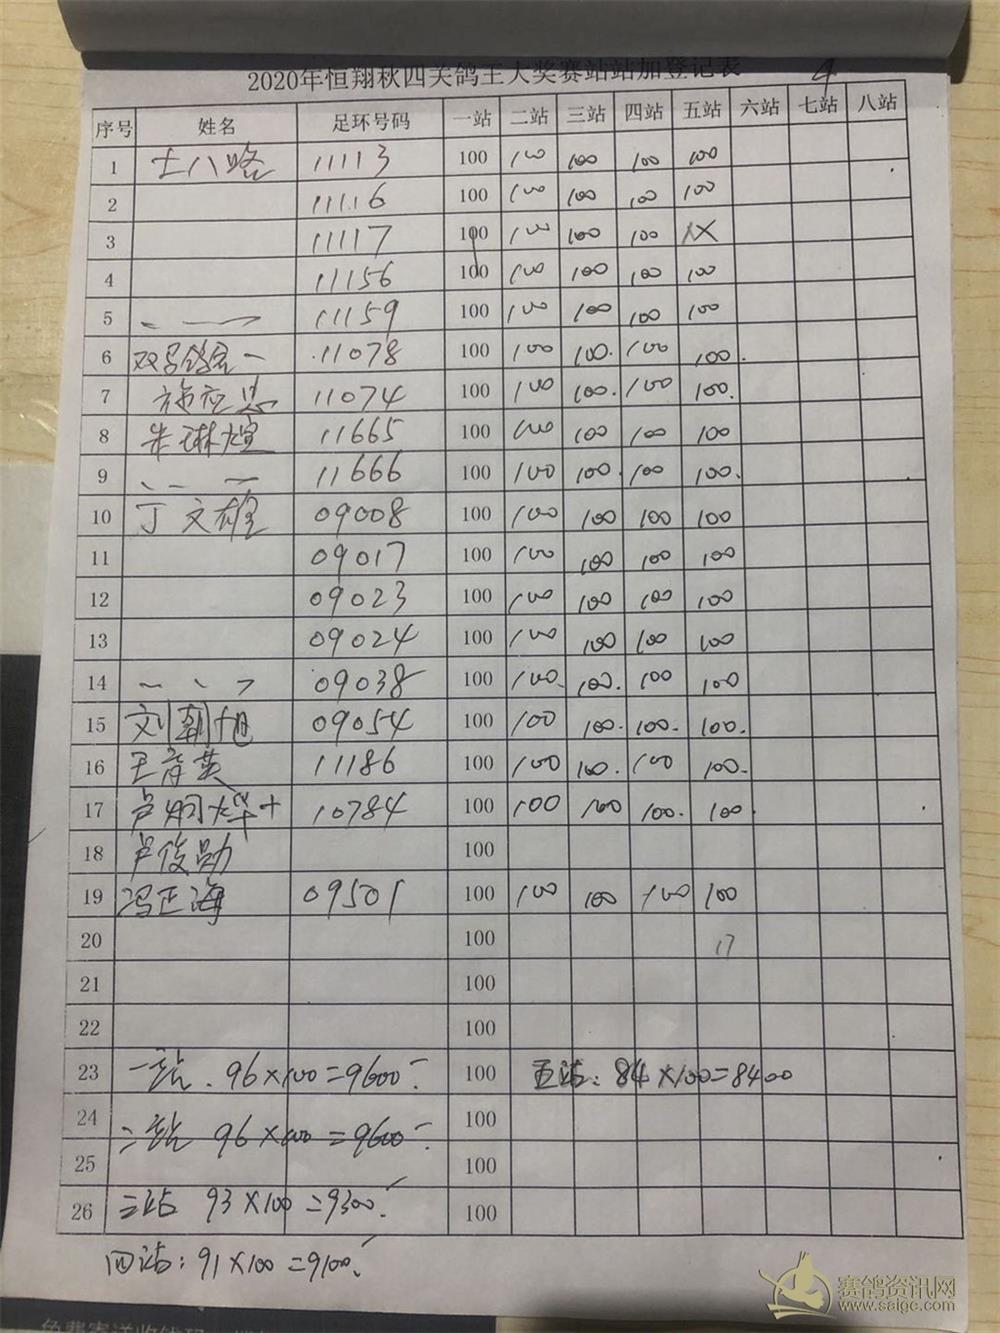 2020年恒翔秋四关鸽王大奖赛站站加登记表 4
序号 姓名 足环号码 一站 二站 三站 四站 五站 六站 七站 八站
1 土八路 11113 100 100 100 100 100
2 11116 100 100 100 100 100
3 11117 100 100 100 100
4 11156 100 100 100 100 100
5 11159 100 100 100 100 100
6 11078 100 100 100. 100 100.
7 施应忠 11074 100 100 100. 100 100.
8 朱琳煊 11665 100 100 100 100 100
9 11666 100 100 100. 100 100.
10 丁文雄 09008 100 100 100 100 100
11 09017 100 100 100 100 100
12 09023 100 100 100 100 100
13 09024 100 100 100 100 100
14 09038 100 100. 100. 100 100
15 刘朝旭 09054 100 100 100. 100. 100.
16 王育英 11186 100 100 100. 100 100.
17 卢炯烨+ 10784 100 100 100 100. 100
18 卢俊勋 100
19 冯正海 09501 100 100 100 100 100
20 100 17
21 100
22 100
23 一站. 96×100=9600 100 五站: 84×100=8400
24 二站 96×100=9600 100
25 100
26 三站 93×100=9300. 100
四站: 91×100=9100.
赛鸽资讯网
www.saigc.com